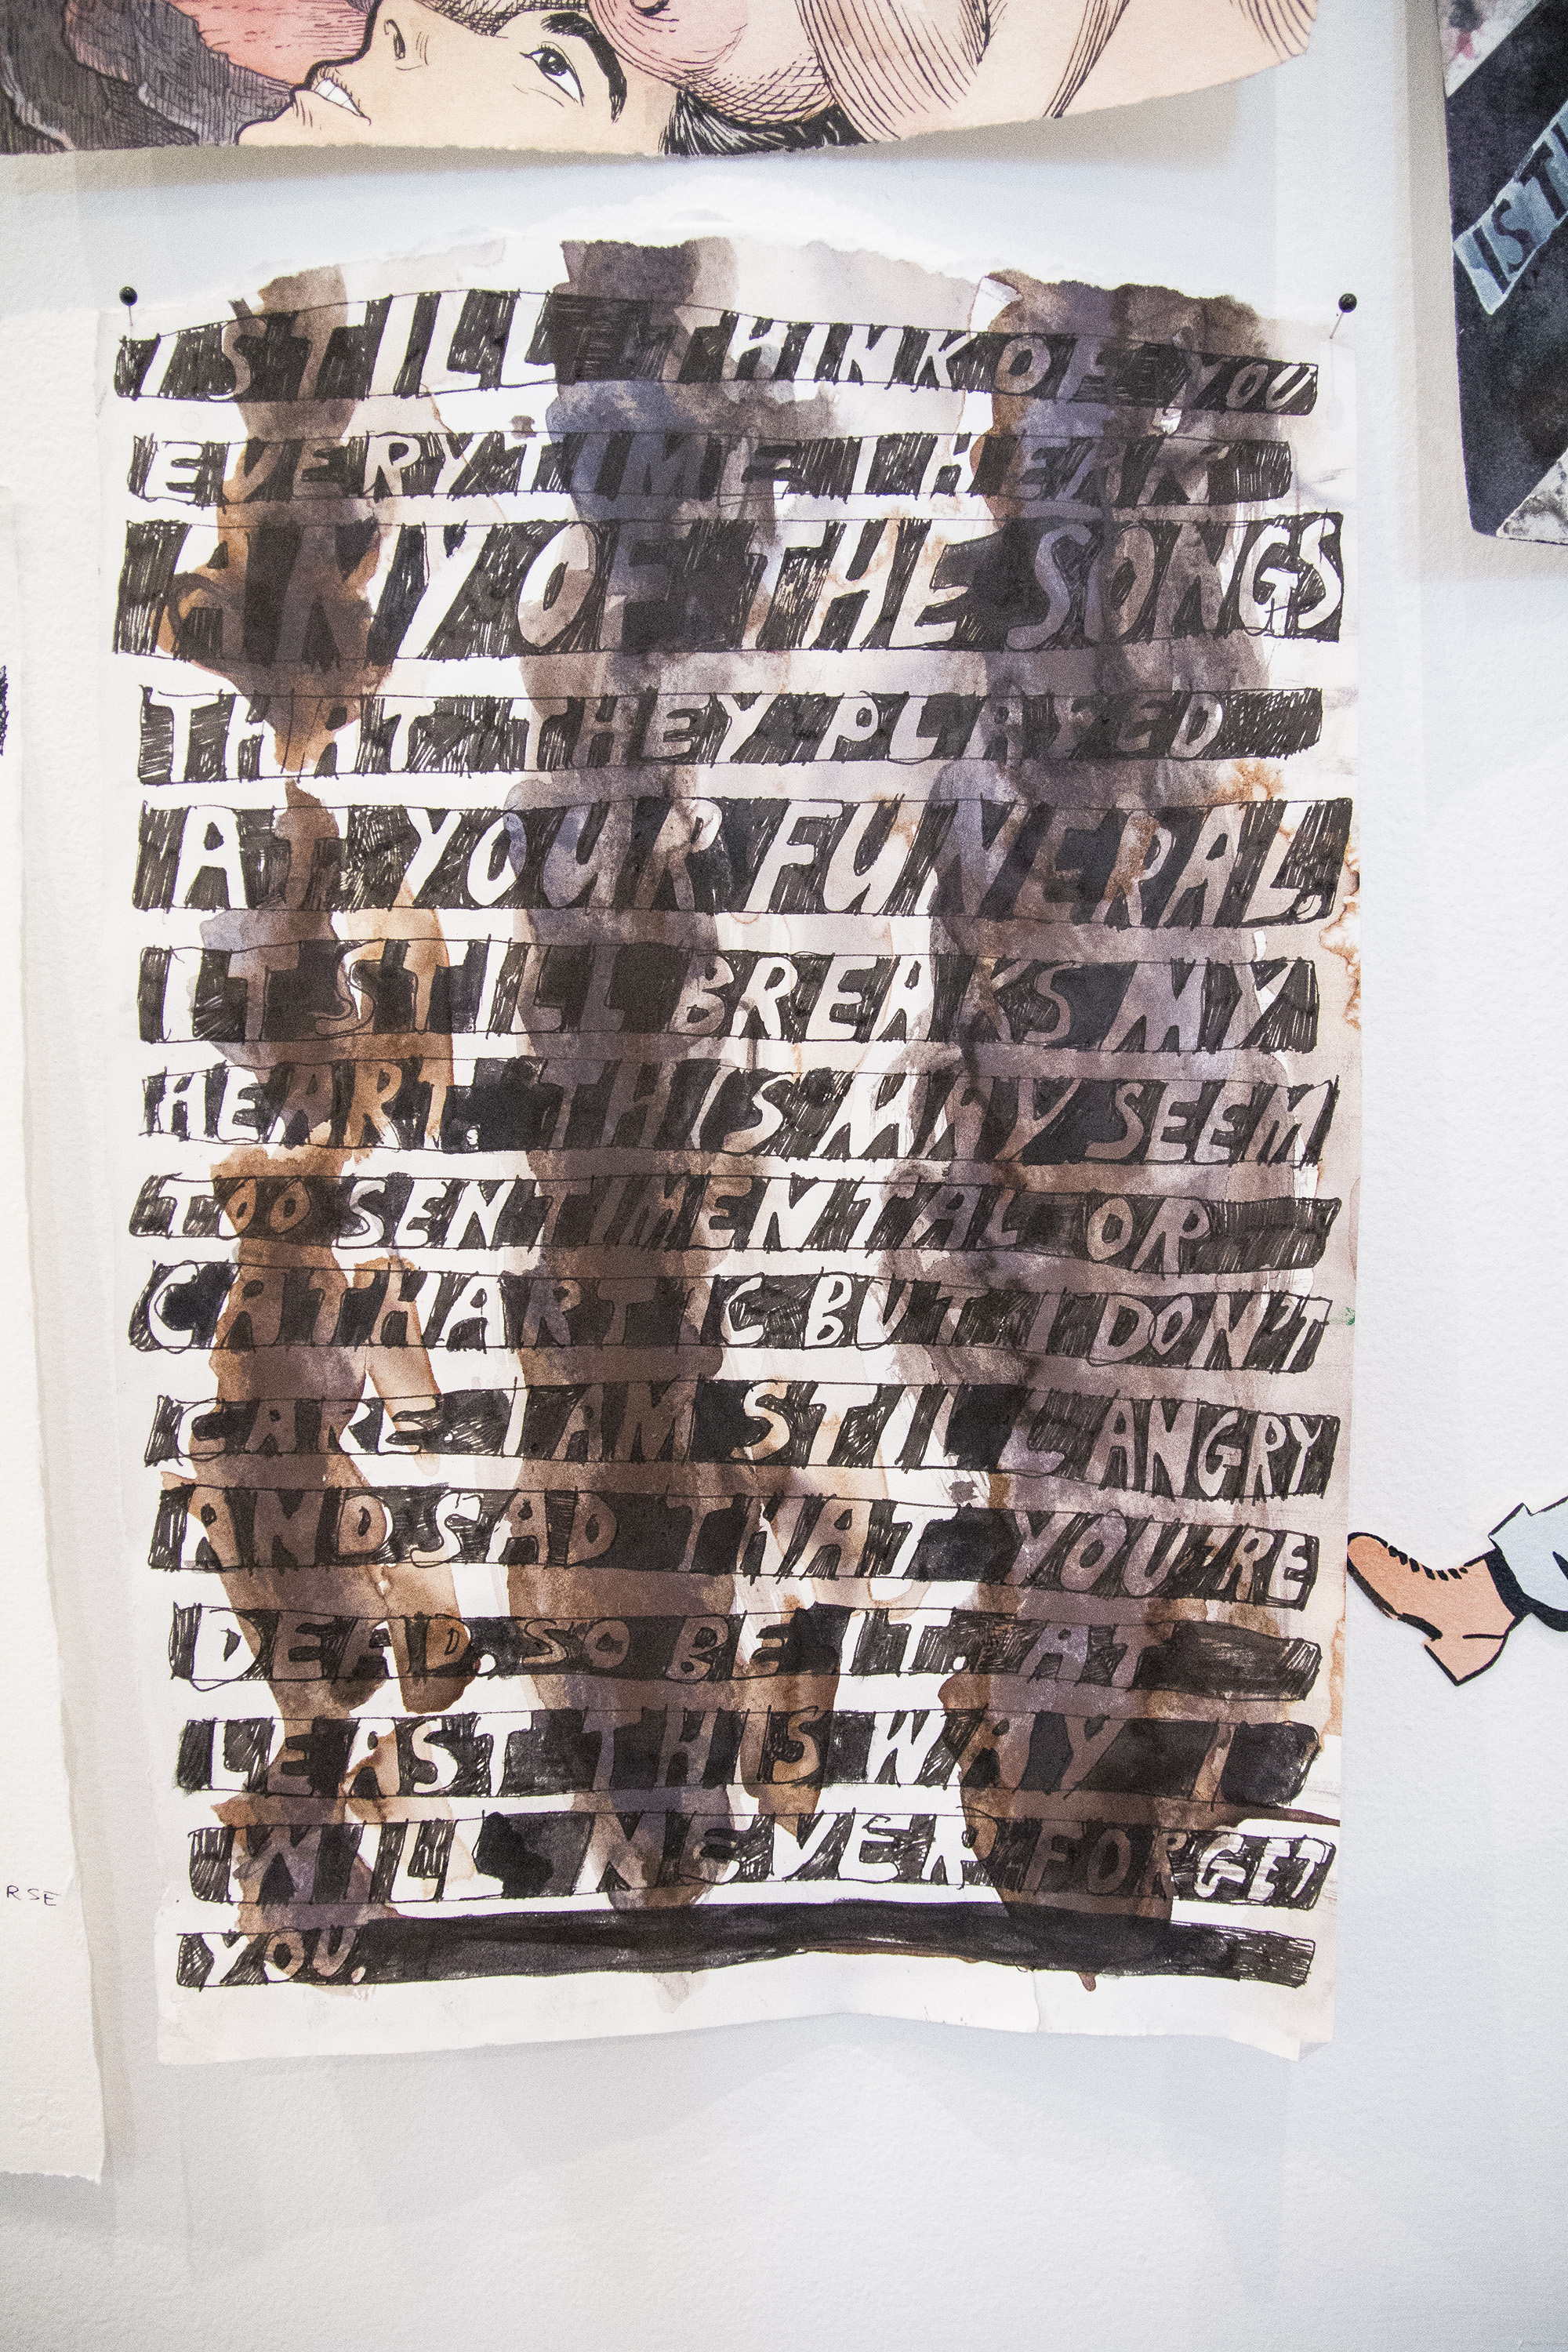 I STILL THINK OF YOU
EVERYTIME I HEAR
ANY OF THE SONGS
THAT THEY PLAYED
AT YOUR FUNERAL.
IT STILL BREAKS MY
HEART. THIS MAY SEEM
TOO SENTIMENTAL OR
CATHARTIC BUT I DON'T
CARE. I AM STILL ANGRY
AND SAD THAT YOU'RE
DEAD. SO BE IT. AT
LEAST THIS WAY I
WILL NEVER FORGET
YOU.
IS T
RSE